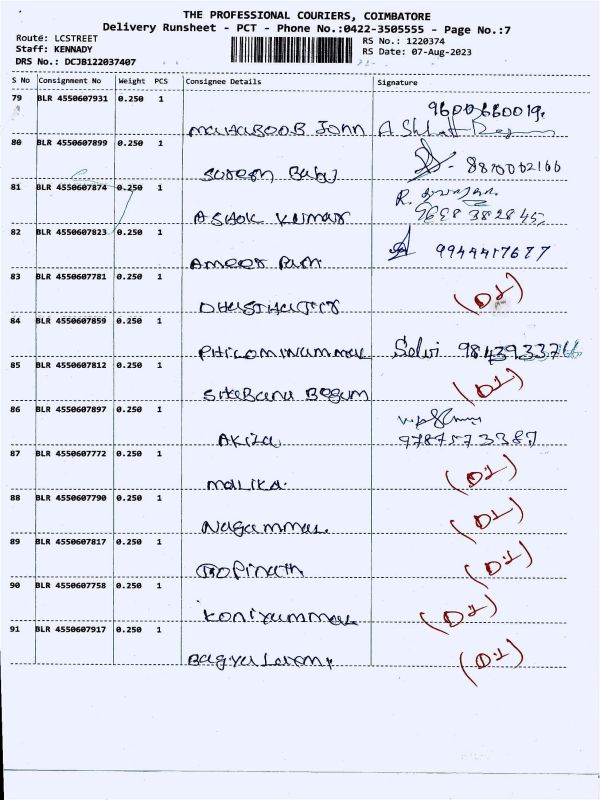 THE PROFESSIONAL COURIERS, COIMBATORE
Delivery Runsheet - PCT - Phone No.:0422-3505555 - Page No.:7
Route: LCSTREET
RS No.: 1220374
Staff: KENNADY
RS Date: 07-Aug-2023
DRS No.: DCJB122037407
S No Consignment No Weight PCS Consignee Details Signature
79 BLR 4550607931 0.250 1
9600660019
John A
80 BLR 4550607899 0.250 1
Suresh Babu 8870002166
81 BLR 4550607874 0.250 1
R.
Ashok Kumar
82 BLR 4550607823 0.250 1
Ameer 9944417677
83 BLR 4550607781 0.250 1
(D1)
84 BLR 4550607859 0.250 1
PHILOMINAMMAL Selvi
85 BLR 4550607812 0.250 1
Begum (D1)
86 BLR 4550607897 0.250 1
Akila 9787573387
87 BLR 4550607772 0.250 1
Malika. (D1)
88 BLR 4550607790 0.250 1
Nagammal (D1)
89 BLR 4550607817 0.250 1
Gopinath (D1)
90 BLR 4550607758 0.250 1
Koniyammal (D1)
91 BLR 4550607917 0.250 1
(D1)